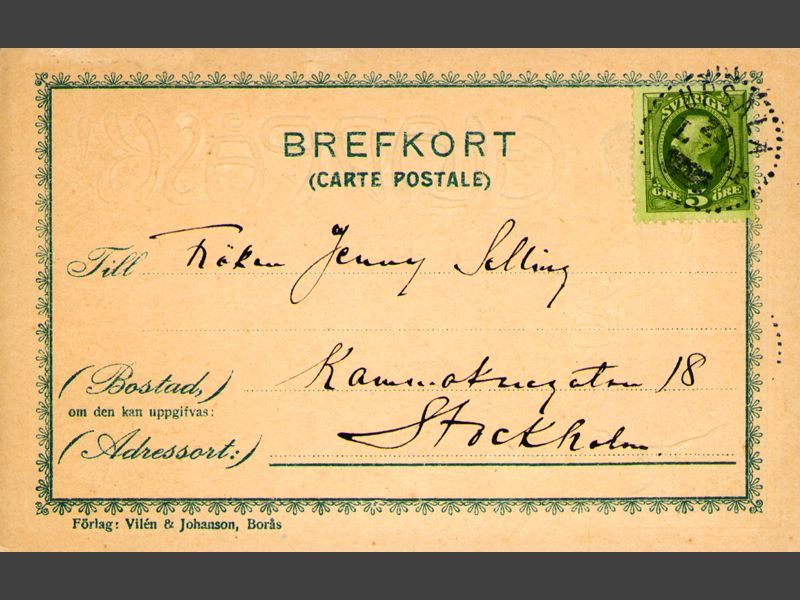 BREFKORT
(CARTE POSTALE)
SVERIGE
5 ÖRE
UPSALA
Till Fröken Jenny Selling
(Bostad,) Kammakaregatan 18
om den kan uppgifvas:
(Adressort:) Stockholm
Förlag: Vilén & Johanson, Borås